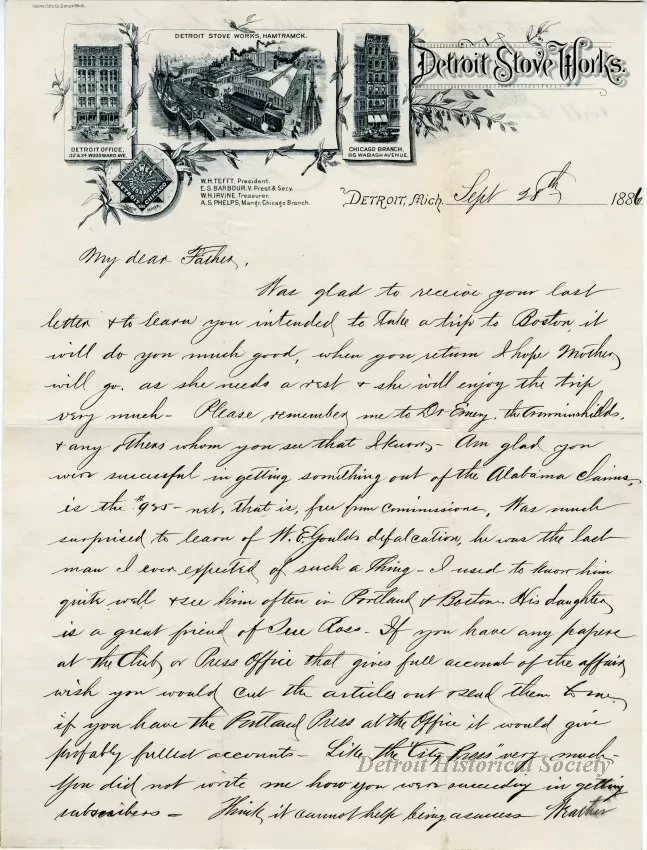 Calvert Lith. Co. Detroit, Mich.
DETROIT STOVE WORKS, HAMTRAMCK.
Detroit Stove Works.
DETROIT OFFICE,
32 & 34 WOODWARD AVE.
CHICAGO BRANCH,
86 WABASH AVENUE
W.H. TEFFT, President.
E.S. BARBOUR, V. Prest & Secy.
W.H. IRVINE, Treasurer.
A.S. PHELPS, Mangr. Chicago Branch.
DETROIT, Mich. Sept 28th 1886
My dear Father,
Was glad to receive your last
letter & to learn you intended to take a trip to Boston, it
will do you much good, when you return I hope Mother
will go. as she needs a rest & she will enjoy the trip
very much - Please remember me to Dr Emery, the Crowninshilds,
& any others whom you see that I know - Am glad you
were successful in getting something out of the Alabama Claims,
is the net, that is, free from commissions, Was much
surprised to learn of W. E. Goulds defalcation, he was the last
man I ever expected of such a thing - I used to know him
quite well & see him often in Portland & Boston. His daughter
is a great friend of Ross - If you have any papers
at the Club or Press Office that gives full account of the affair
wish you would cut the articles out & send them to me,
if you have the Portland Press at the Office it would give
probably fullest accounts - Like the "City Press" very much -
You did not write me how you were succeeding in getting
subscribers - Think it cannot help being a success Weather
Detroit Historical Society